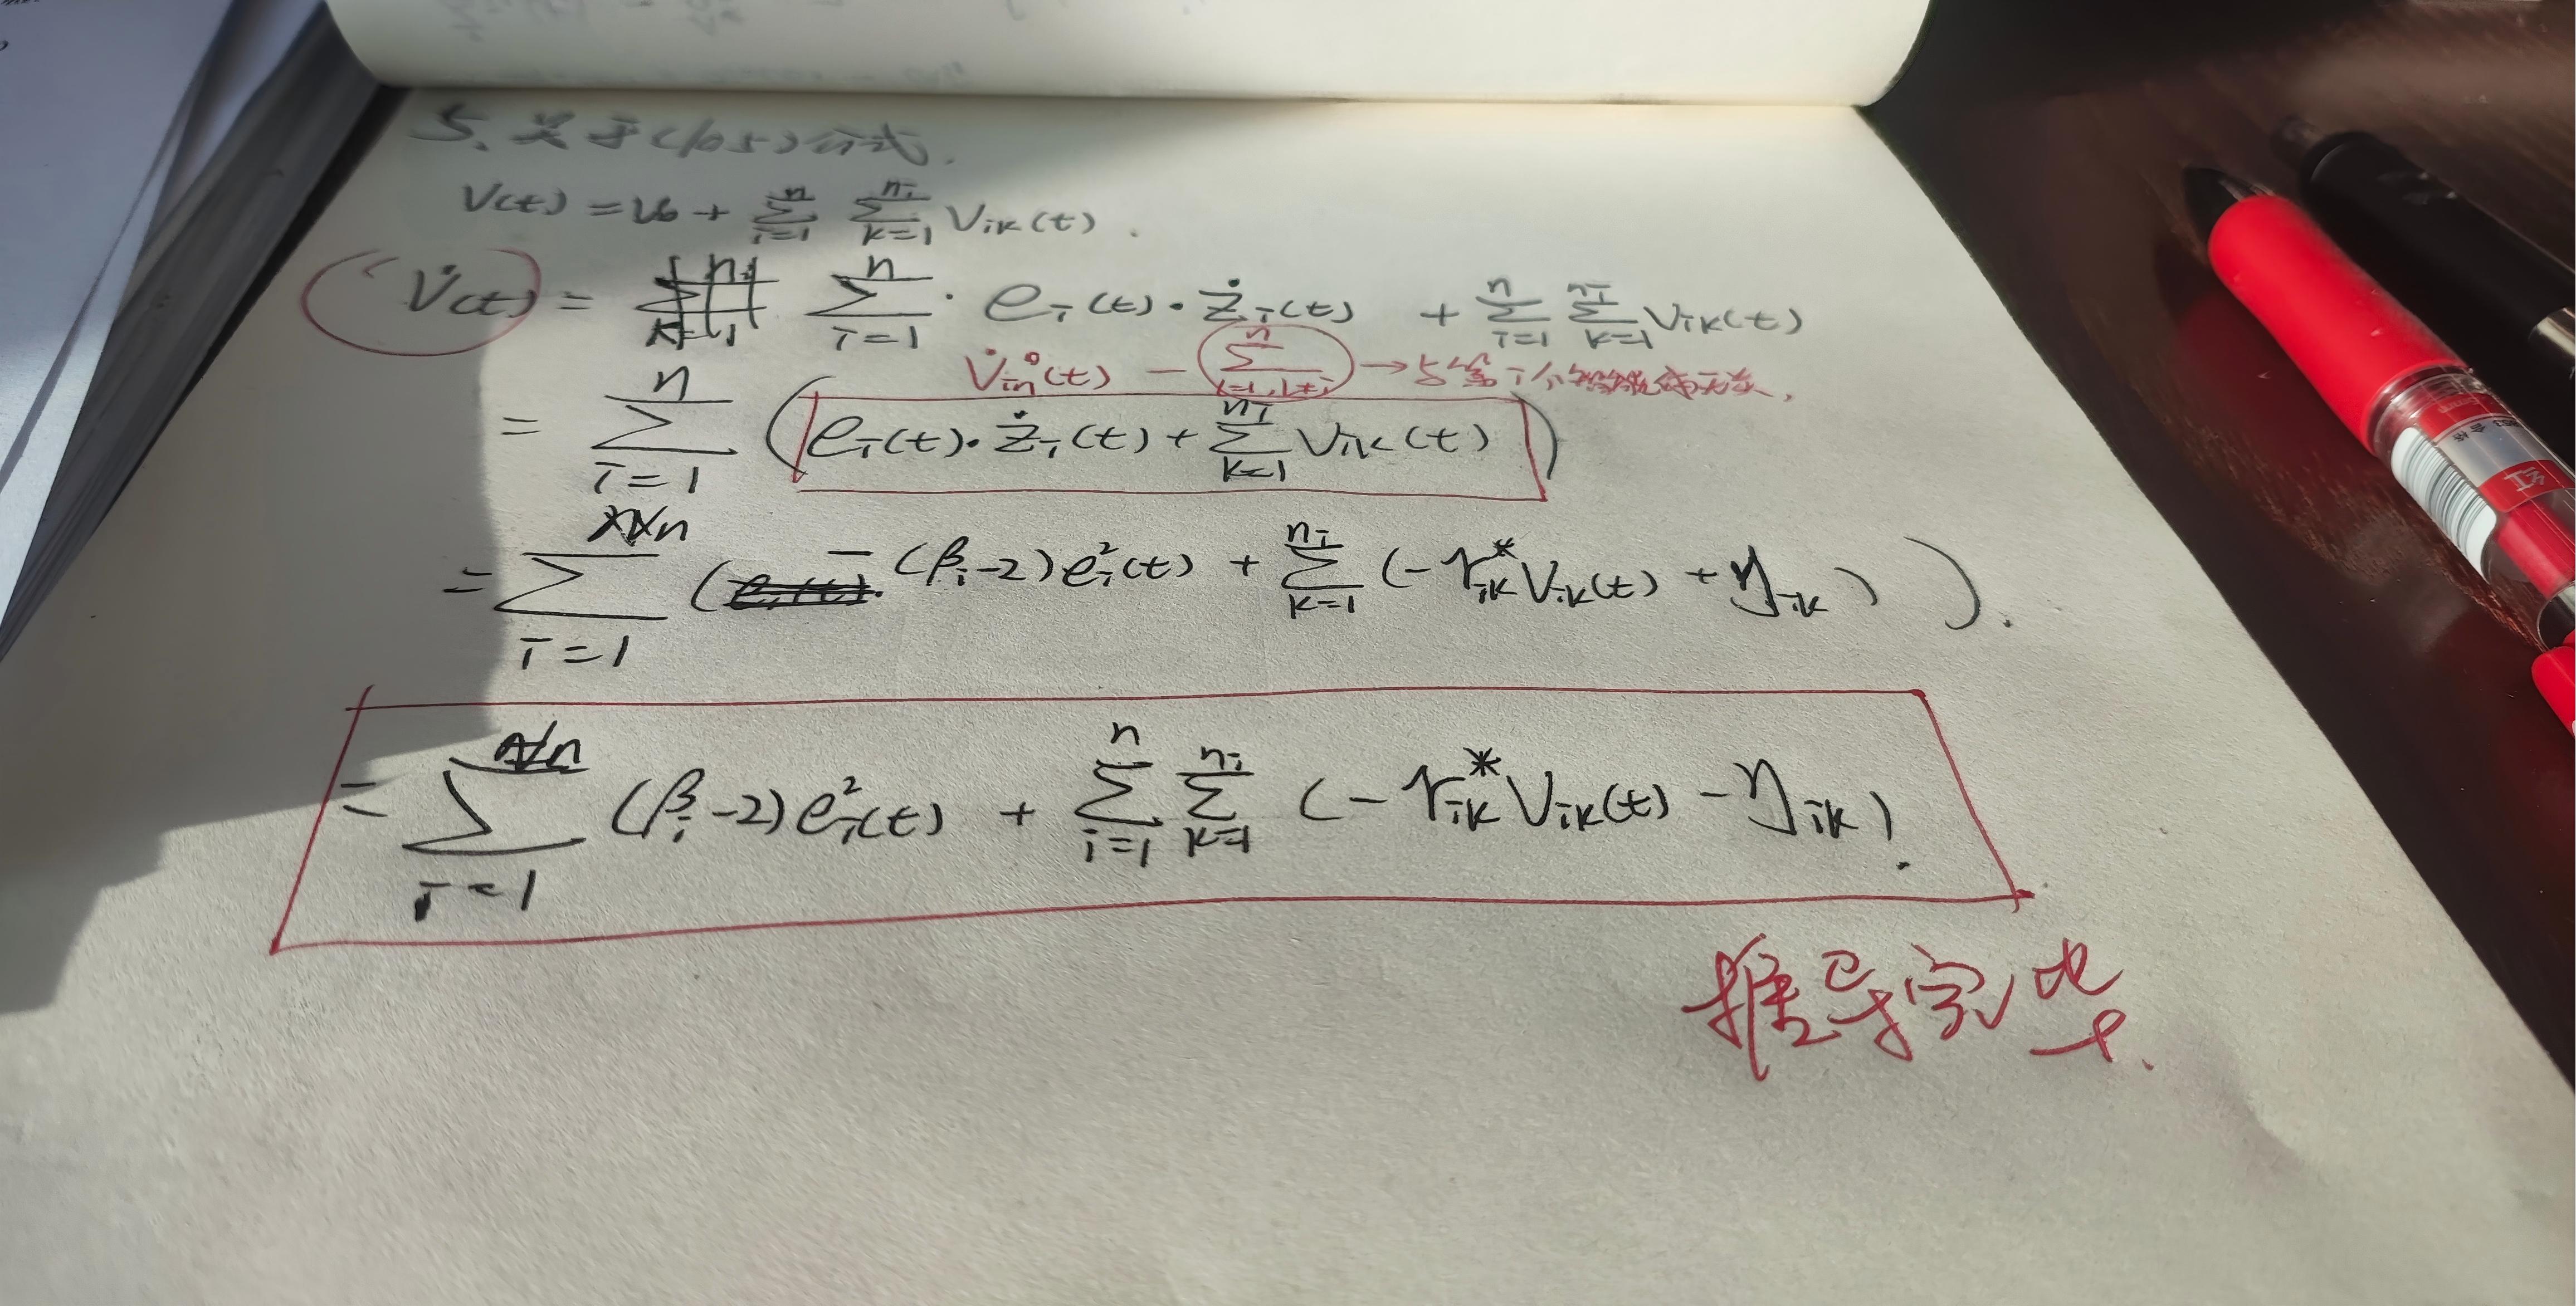 5. 关于(105)公式.
V(t) = V₀ + ∑_{i=1}^{n} ∑_{k=1}^{n_i} V_{ik}(t).
V̇(t) = ∑_{i=1}^{n} · e_i(t) · ż_i(t) + ∑_{i=1}^{n} ∑_{k=1}^{n_i} V_{ik}(t)
V̇_{in}(t) − ∑_{l=1, l≠i}^{n} → 与第i个
= ∑_{i=1}^{n} ( e_i(t) · ż_i(t) + ∑_{k=1}^{n_i} V_{ik}(t) )
= ∑_{i=1}^{n} ( −(β_i−2)e_i²(t) + ∑_{k=1}^{n_i} (−r*_{ik} V_{ik}(t) + η_{ik}) ).
= ∑_{i=1}^{n} (β_i−2)e_i²(t) + ∑_{i=1}^{n} ∑_{k=1}^{n_i} (−r*_{ik} V_{ik}(t) − η_{ik}).
推导完毕.
红